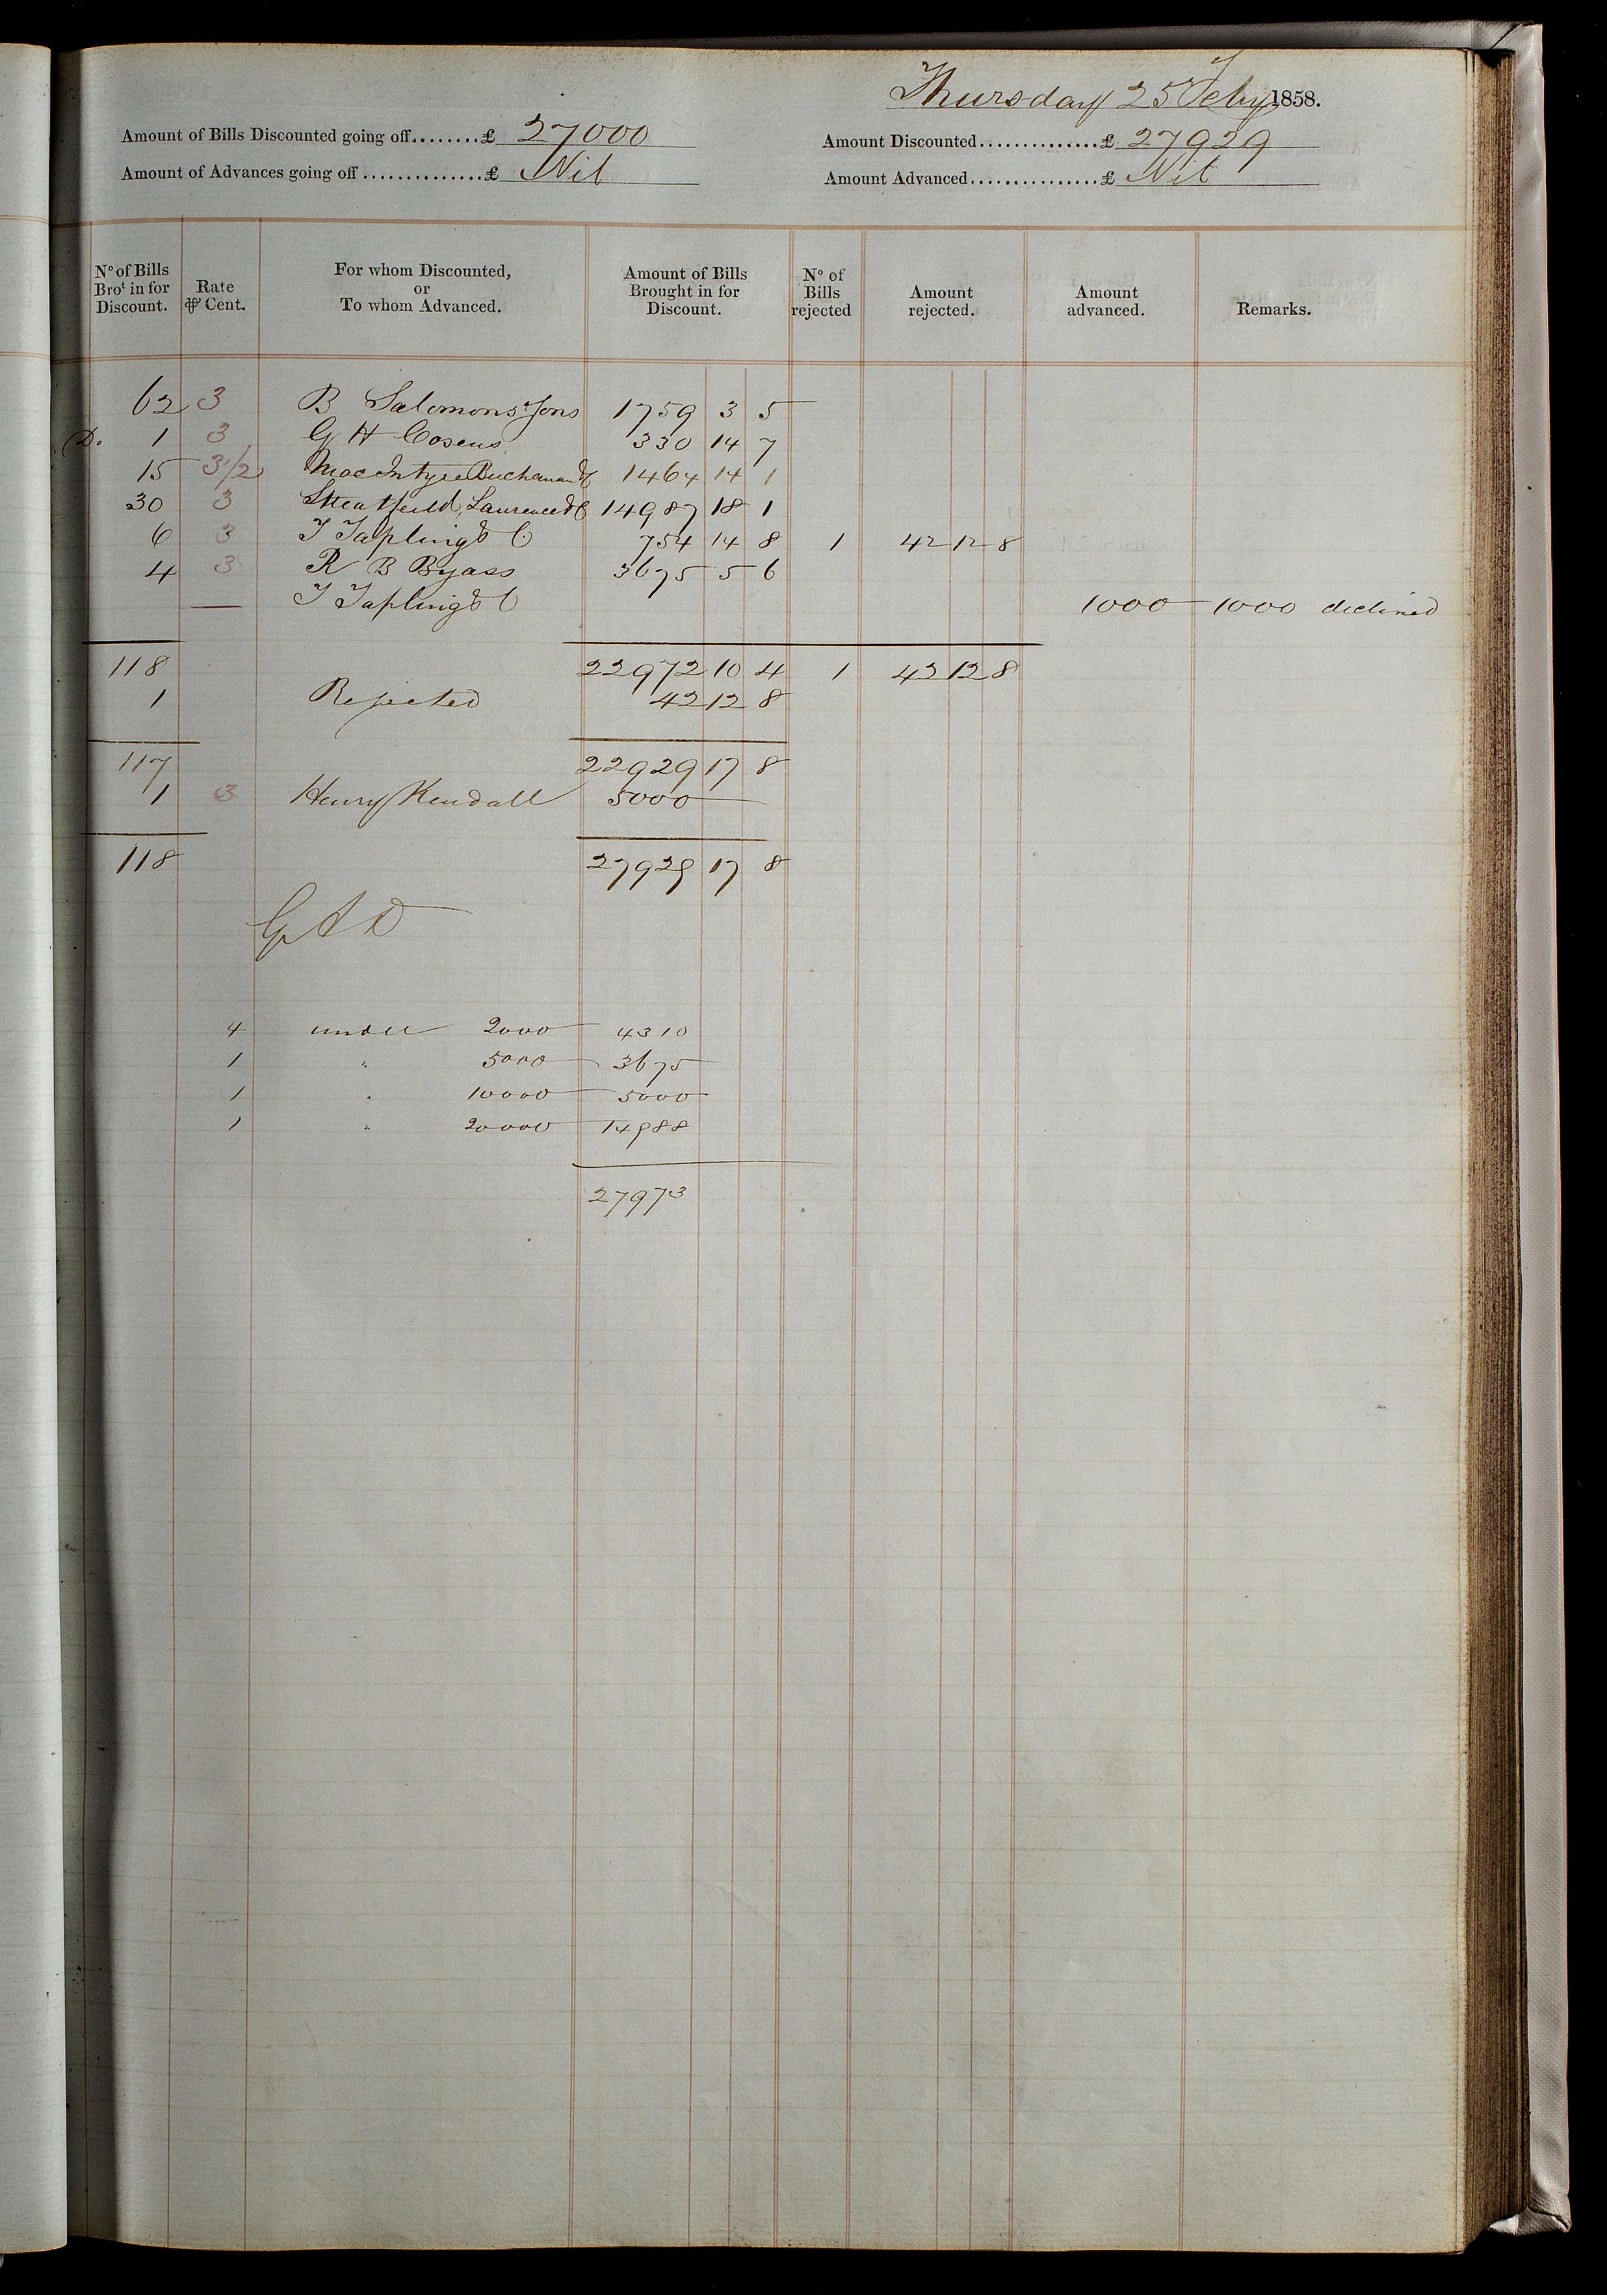 Thursday 25 Feby 1858.
Amount of Bills Discounted going off........£ 27000 Amount Discounted...............£ 27929
Amount of Advances going off..............£ Nil Amount Advanced................£ Nil
No of Bills Brot in for Discount. Rate ⅌ Cent. For whom Discounted, or To whom Advanced. Amount of Bills Brought in for Discount. No of Bills rejected Amount rejected. Amount advanced. Remarks.
62 3 B Salomons & Sons 1759 3 5
D. 1 3 G H Cosens 330 14 7
15 3 1/2 MacIntyre Buchanan & C 1464 14 1
30 3 Streatfeild, Laurence & C 14987 18 1
6 3 T Tapling & C 754 14 8 1 42 12 8
4 3 R B Byass 3675 5 6
— T Tapling & C 1000 1000 declined
118 22972 10 4 1 42 12 8
1 Rejected 42 12 8
117 22929 17 8
1 3 Henry Kendall 5000
118 27929 17 8
4 under 2000 4310
1 " 5000 3675
1 " 10000 5000
1 " 20000 14988
27973